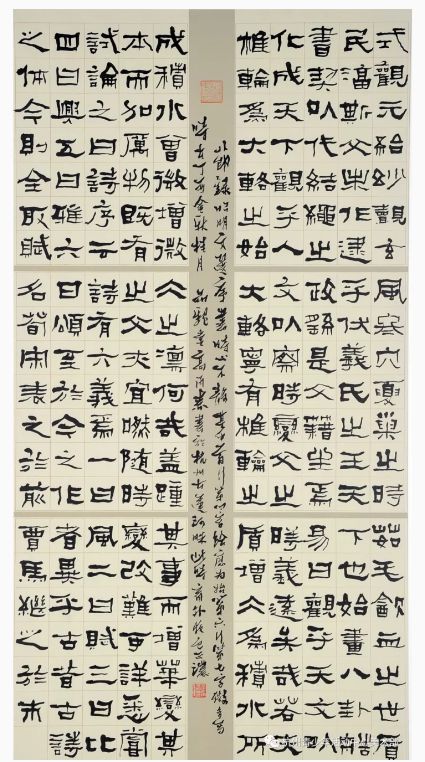 式觀元始眇覿玄風冬穴夏巢之時茹毛飲血之世質
民淳斯文未作逮乎伏羲氏之王天下也始畫八卦造
書契以代結繩之政繇是文籍生焉易曰觀乎天文以
化成天下觀乎人文以察時變文之時義遠矣哉若夫
椎輪爲大輅之始大輅寧有椎輪之質增冰爲積水所
昭明文選序
時在丁酉金秋桂月
成積水曾微增微冰之凜何哉蓋踵其事而增華變其
本而加厲物既有之文夫宜然隨時變改難可詳悉嘗
試論之曰詩序云詩有六義焉一曰風二曰賦三曰比
四曰興五曰雅六曰頌至於今之作者異乎古昔古詩
之体今則全取賦名荀宋表之於前賈馬繼之於末